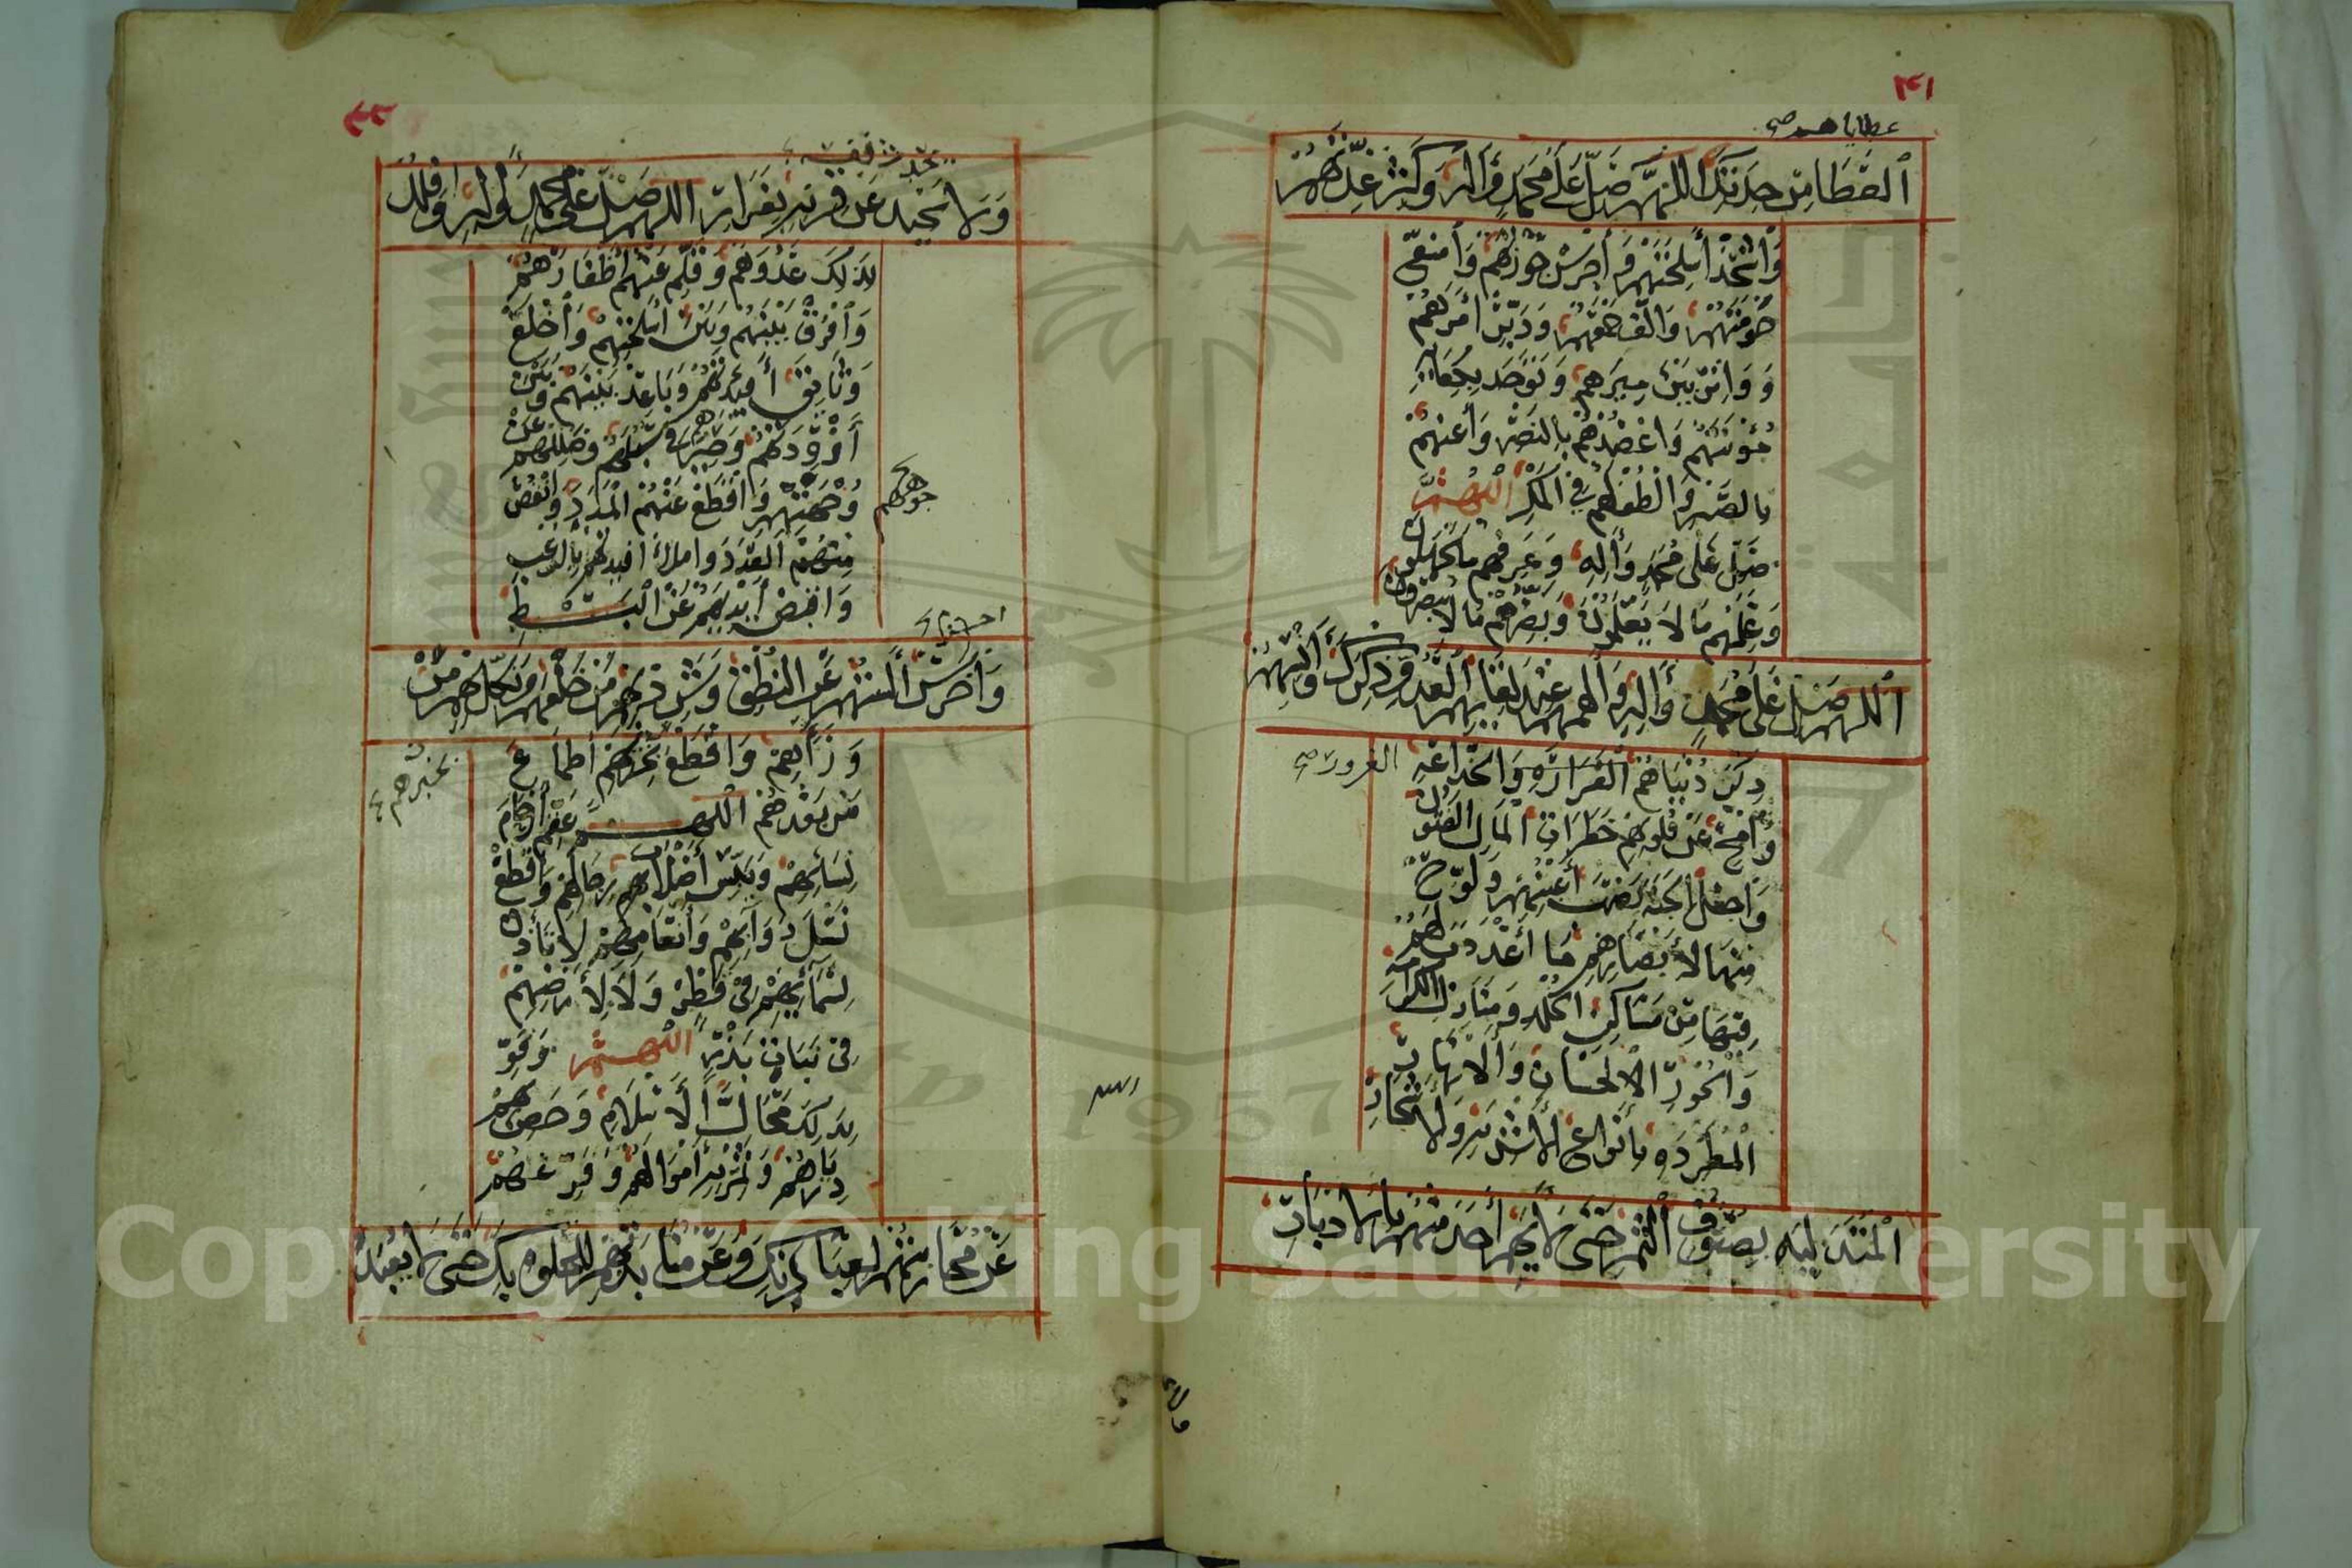 عطاياهم صح
العطا من جدتك اللهم صل على محمد وآله وكثر عدتهم
واشحذ أسلحتهم واحرس حوزتهم وامنع
حومتهم والف جمعهم ودبر أمرهم
وواتر بين ميرهم وتوحد بكفاية
مؤنتهم واعضدهم بالنصر وأعنهم
بالصبر والطف لهم في المكر اللهم
صل على محمد وآله وعرفهم ما يجهلون
وعلمهم ما لا يعلمون وبصرهم ما لا يبصرون
اللهم صل على محمد وآله وأنسهم عند لقايهم العدو ذكر
دنياهم الغرارة والخداعة
الغرور صح
وامح عن قلوبهم خطرات المال الفتون
واجعل الجنة نصب أعينهم ولوح
منها لأبصارهم ما أعددت لهم
فيها من مساكن الخلد ومنازل الكرامة
والحور الحسان والأنهار
المطردة بأنواع الأشربة والأشجار
المتدلية بصنوف الثمر حتى لا يهم أحد منهم بالادبار
ولا يحدث
ولا عن قرنه بفرار اللهم صل على محمد وآله وافلل
بذلك عدوهم وقلم عنهم أظفارهم
وافرق بينهم وبين أسلحتهم واخلع
وثايق أفيدتهم وباعد بينهم وبين
أزودتهم وحيرهم في سبلهم وضللهم عن
وجهتهم واقطع عنهم المدد وانقص
وجوههم
منهم العدد واملأ افيدتهم بالرعب
واقبض أيديهم عن البسط
واخرس ألسنتهم عن النطق وشرد بهم من خلفهم ونكل بهم من
وراهم واقطع بخزيهم أطماع
من بعدهم اللهم عقم أرحام
نسائهم ويبس أصلاب رجالهم واقطع
نسل دوابهم وأنعامهم لا تأذن
لسمائهم في قطر ولا لأرضهم
في نبات بذر اللهم وقو
بذلك محال الاسلام وحصن به
ديارهم وثمر به أموالهم وفرغهم
عن محاربتهم لعبادتك وعن منابذتهم للخلوة بك حتى لا يعبد